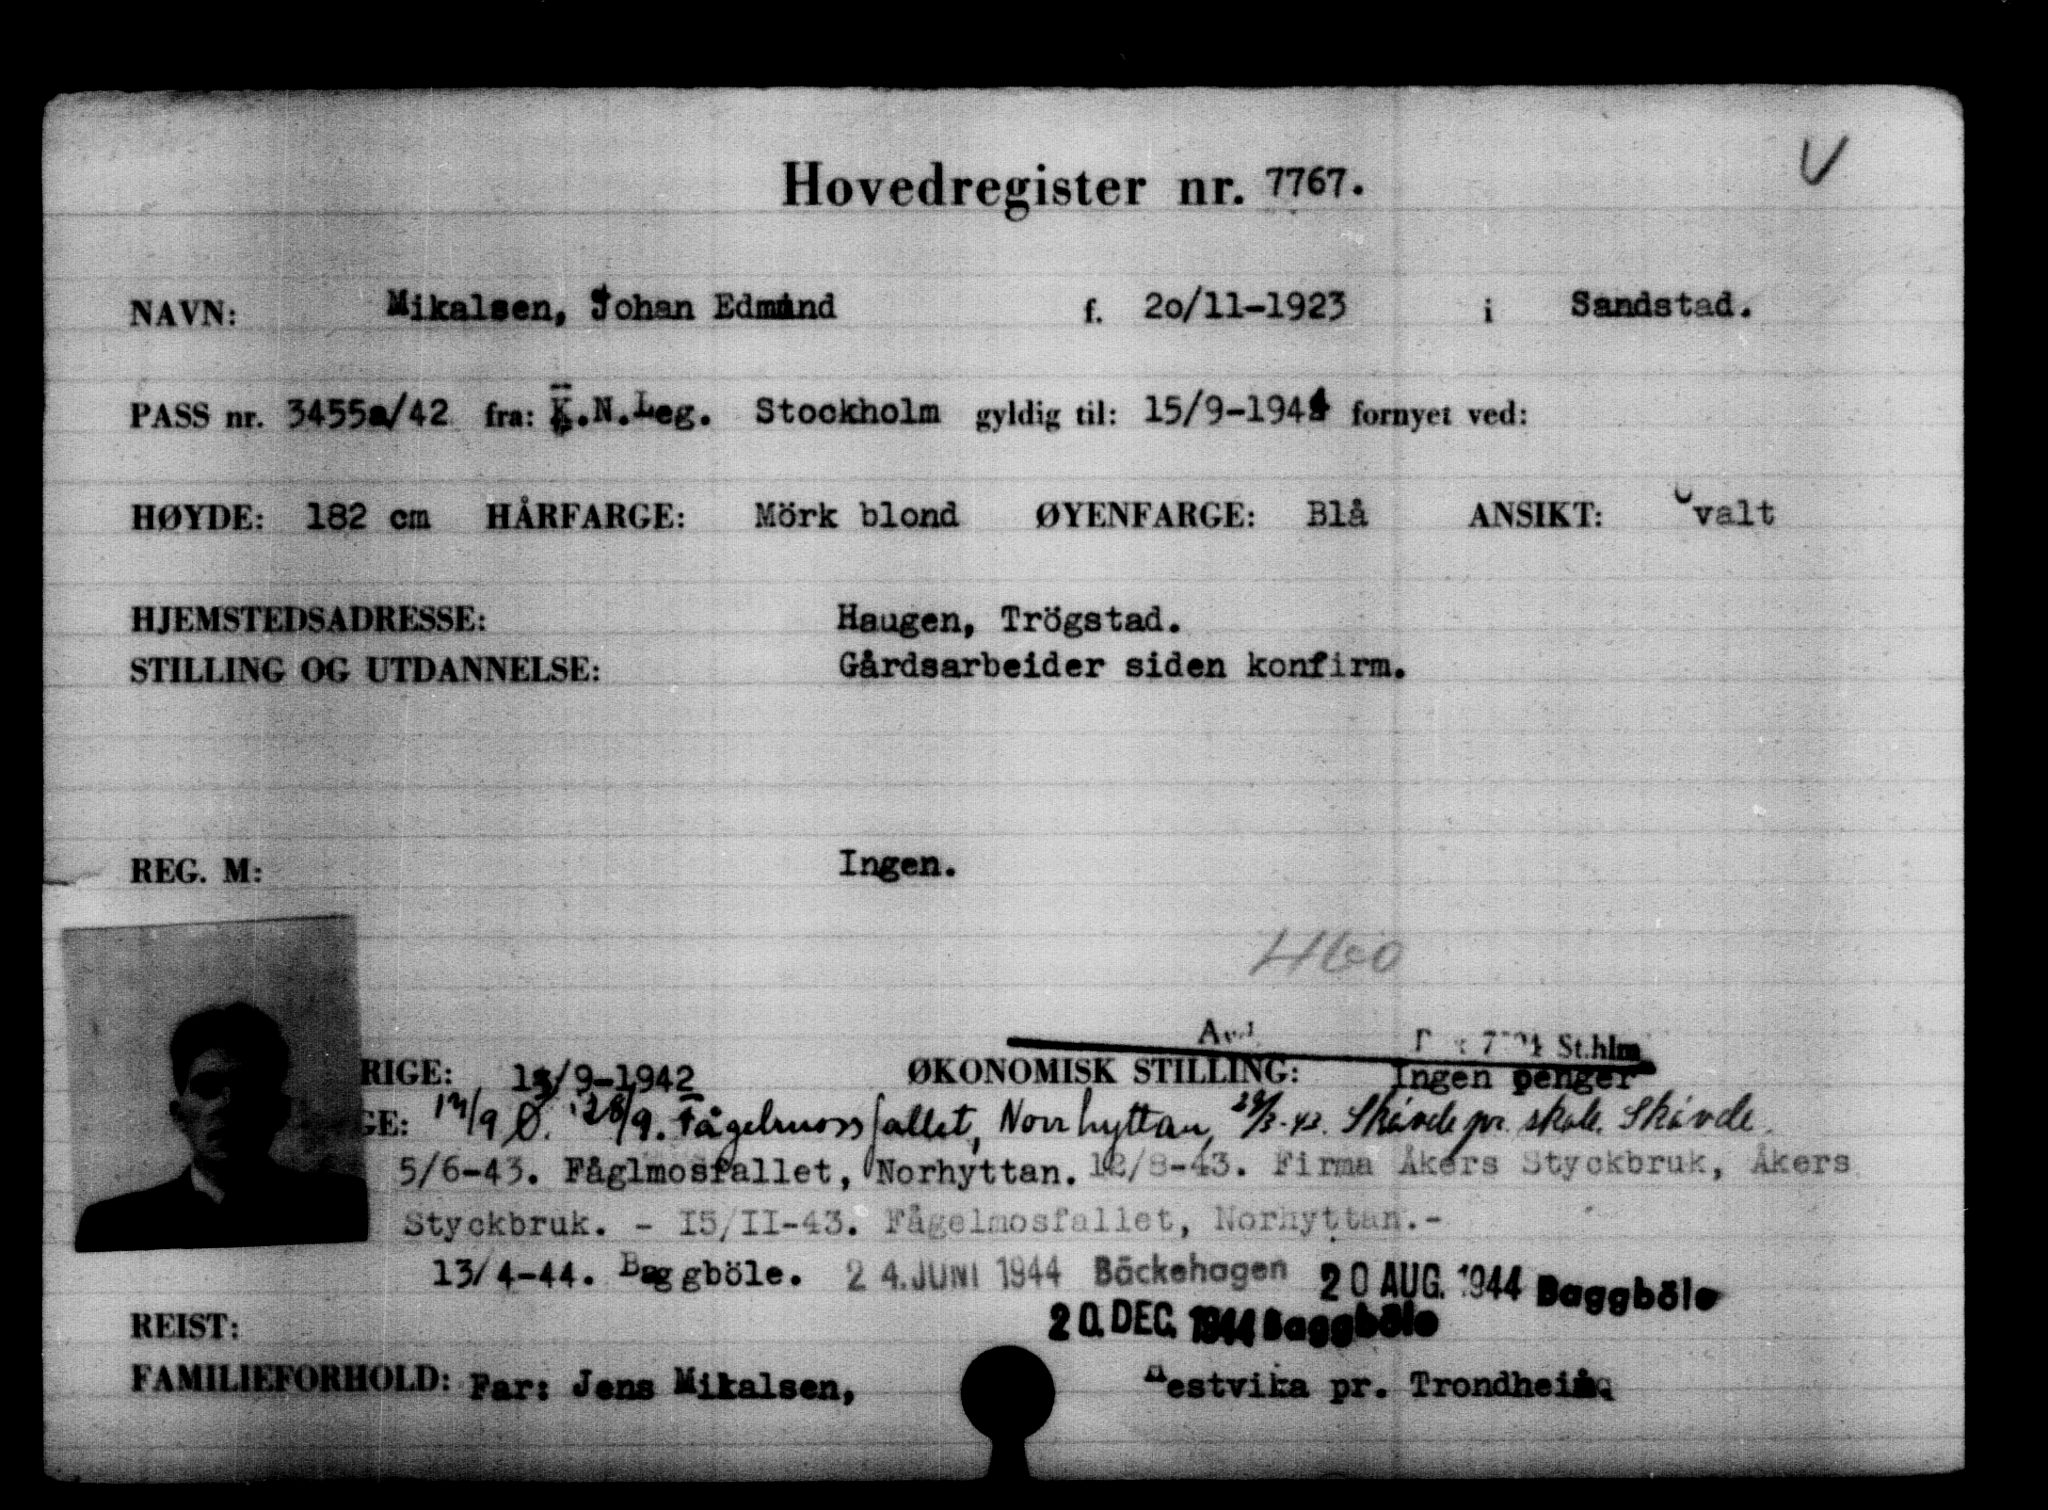 V
Hovedregister nr. 7767.
NAVN: Mikalsen, Johan Edmund f. 2o/11-1923 i Sandstad.
PASS nr. 3455a/42 fra: K.N.Leg. Stockholm gyldig til: 15/9-1944 fornyet ved:
HØYDE: 182 cm HÅRFARGE: Mörk blond ØYENFARGE: Blå ANSIKT: Ovalt
HJEMSTEDSADRESSE: Haugen, Trögstad.
STILLING OG UTDANNELSE: Gårdsarbeider siden konfirm.
REG. M: Ingen.
460
St.hlm
RIGE: 13/9-1942 ØKONOMISK STILLING: Ingen penger
GE: 14/9 Ö. 28/9. Fågelmossfallet, Norrhyttan, Skövde pr. skole. Skövde.
5/6-43. Fåglmosfallet, Norhyttan. 12/8-43. Firma Åkers Styckbruk, Åkers
Styckbruk. - I5/II-43. Fågelmosfallet, Norhyttan.-
13/4-44. Baggböle. 24. JUNI 1944 Bäckehagen 20 AUG. 1944 Baggböle
REIST: 20. DEC. 1944 Baggböle
FAMILIEFORHOLD: Far: Jens Mikalsen, estvika pr. Trondheim